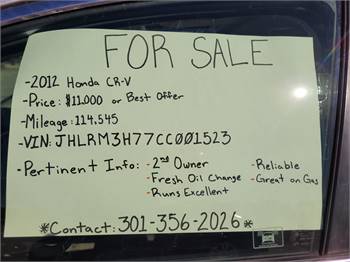 FOR SALE
-2012 Honda CR-V
-Price: $11.000 or Best Offer
-Mileage: 114.545
-VIN: JHLRM3H77CC001523
-Pertinent Info: -2nd Owner -Reliable
-Fresh Oil Change -Great on Gas
-Runs Excellent
*Contact: 301-356-2026*